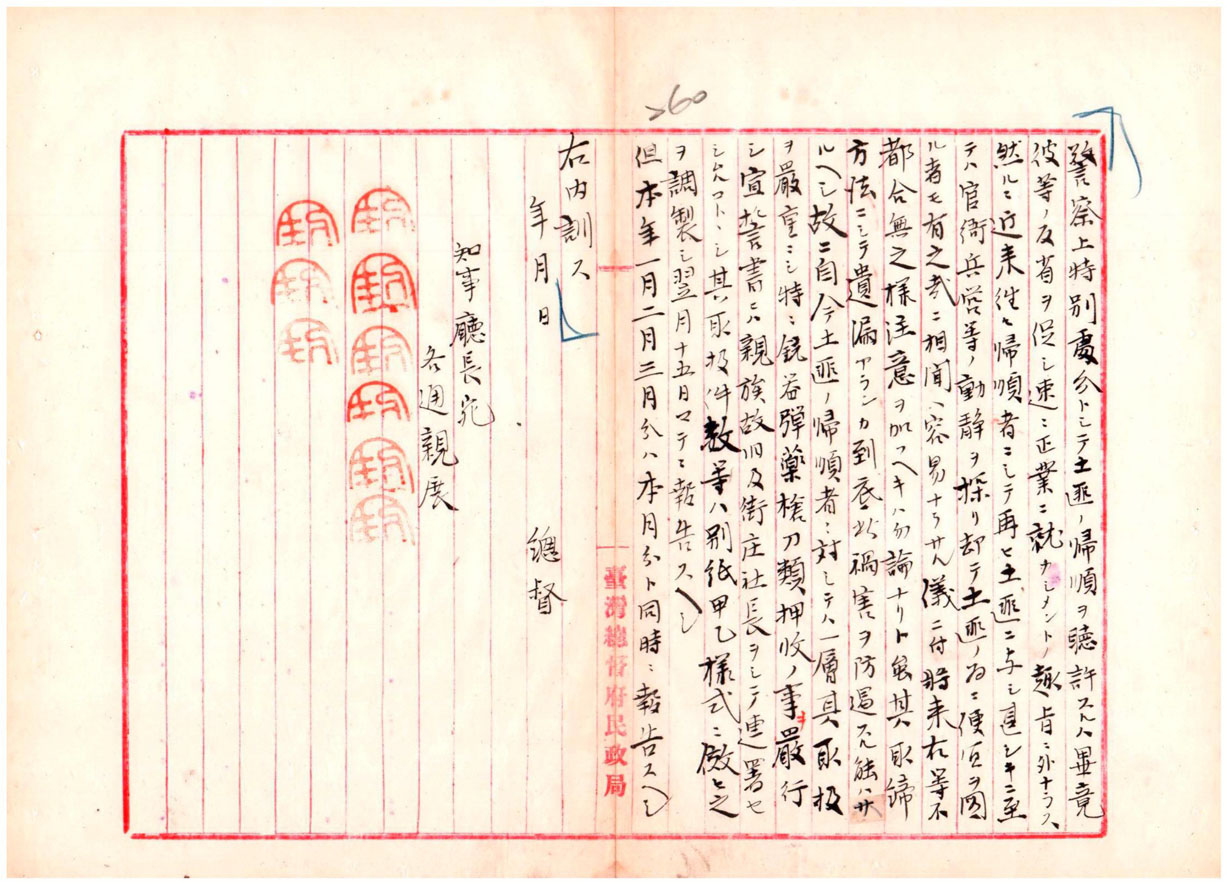 260
警察上特別處分トシテ土匪ノ帰順ヲ聴許スルハ畢竟
彼等ノ反省ヲ促シ速ニ正業ニ就カシメントノ趣旨ニ外ナラス
然ルニ近来往々帰順者ニシテ再ヒ土匪ニ与シ甚シキニ至
テハ官衙兵営等ノ動静ヲ探リ却テ土匪ノ為ニ便宜ヲ図
ル者モ有之哉ニ相聞ヘ容易ナラサル儀ニ付将来右等不
都合無之様注意ヲ加フヘキハ勿論ナリト雖其取締
方法ニシテ遺漏アランカ到底此禍害ヲ防遏スル能ハサ
ルヘシ故ニ自今土匪ノ帰順者ニ対シテハ一層其取扱
ヲ厳重ニシ特ニ銃器弾薬槍刀類押収ノ事ヲ厳行
シ宣誓書ニハ親族故旧及街庄社長ヲシテ連署セ
シムルコトシ其取扱件数等ハ別紙甲乙様式ニ倣ヒ之
ヲ調製シ翌月十五日マテニ報告スヘシ
但本年一月二月三月分ハ本月分ト同時ニ報告スヘシ
右内訓ス
年月日
總督
知事廳長宛
各通親展
臺灣總督府民政局